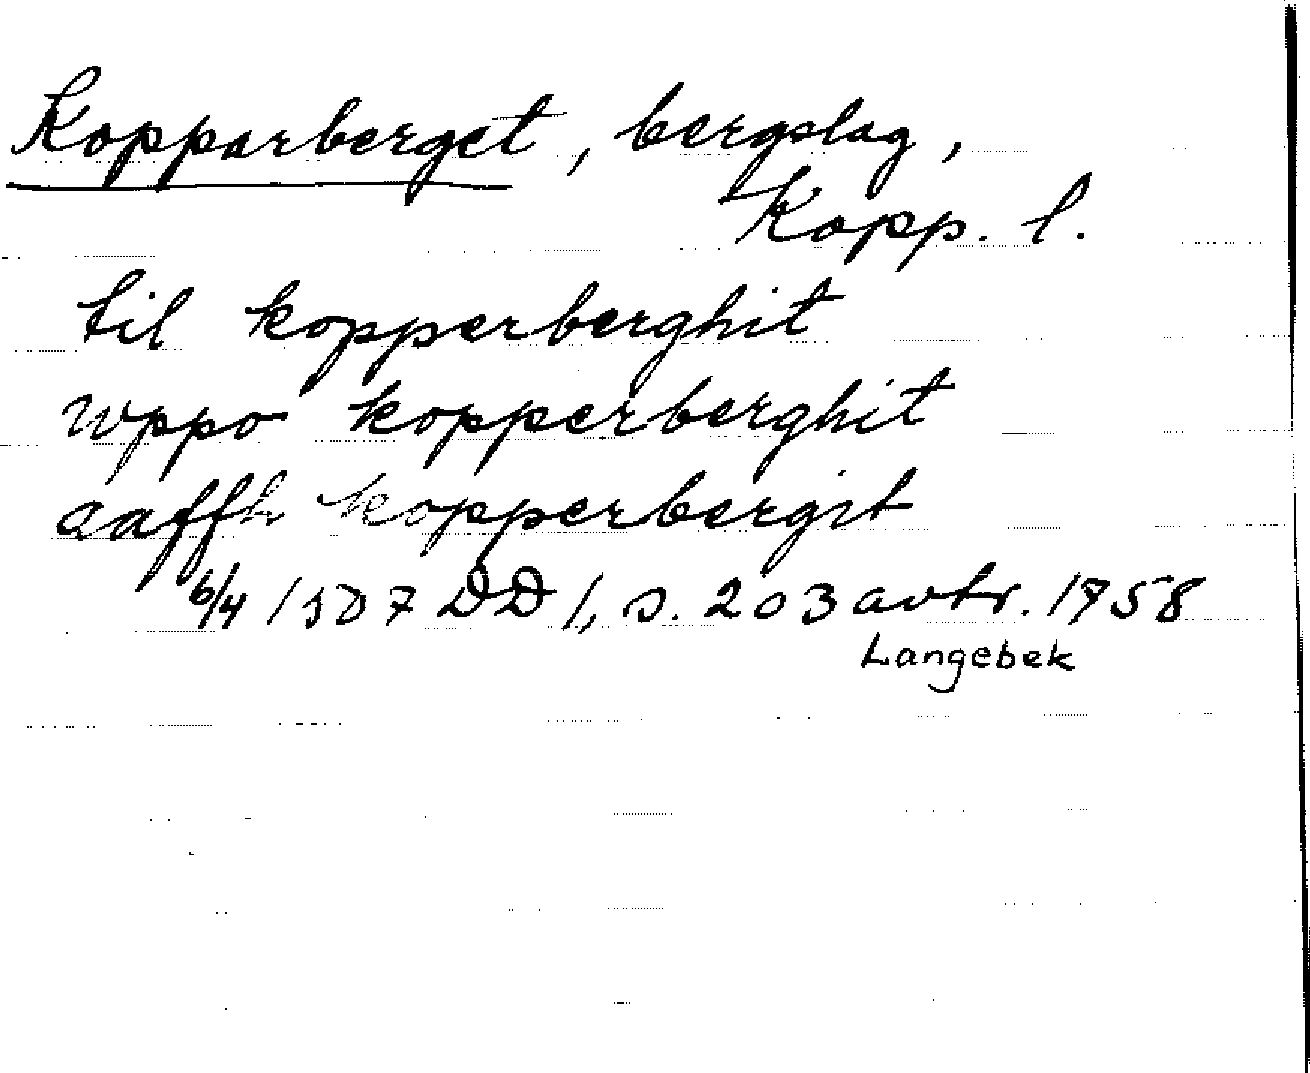 Kopparberget, bergslag,
Kopp. l.
til kopperberghit
wppo kopperberghit
aaffh kopperbergit
6/4 1507 DD 1, s. 203 avtr. 1758
Langebek